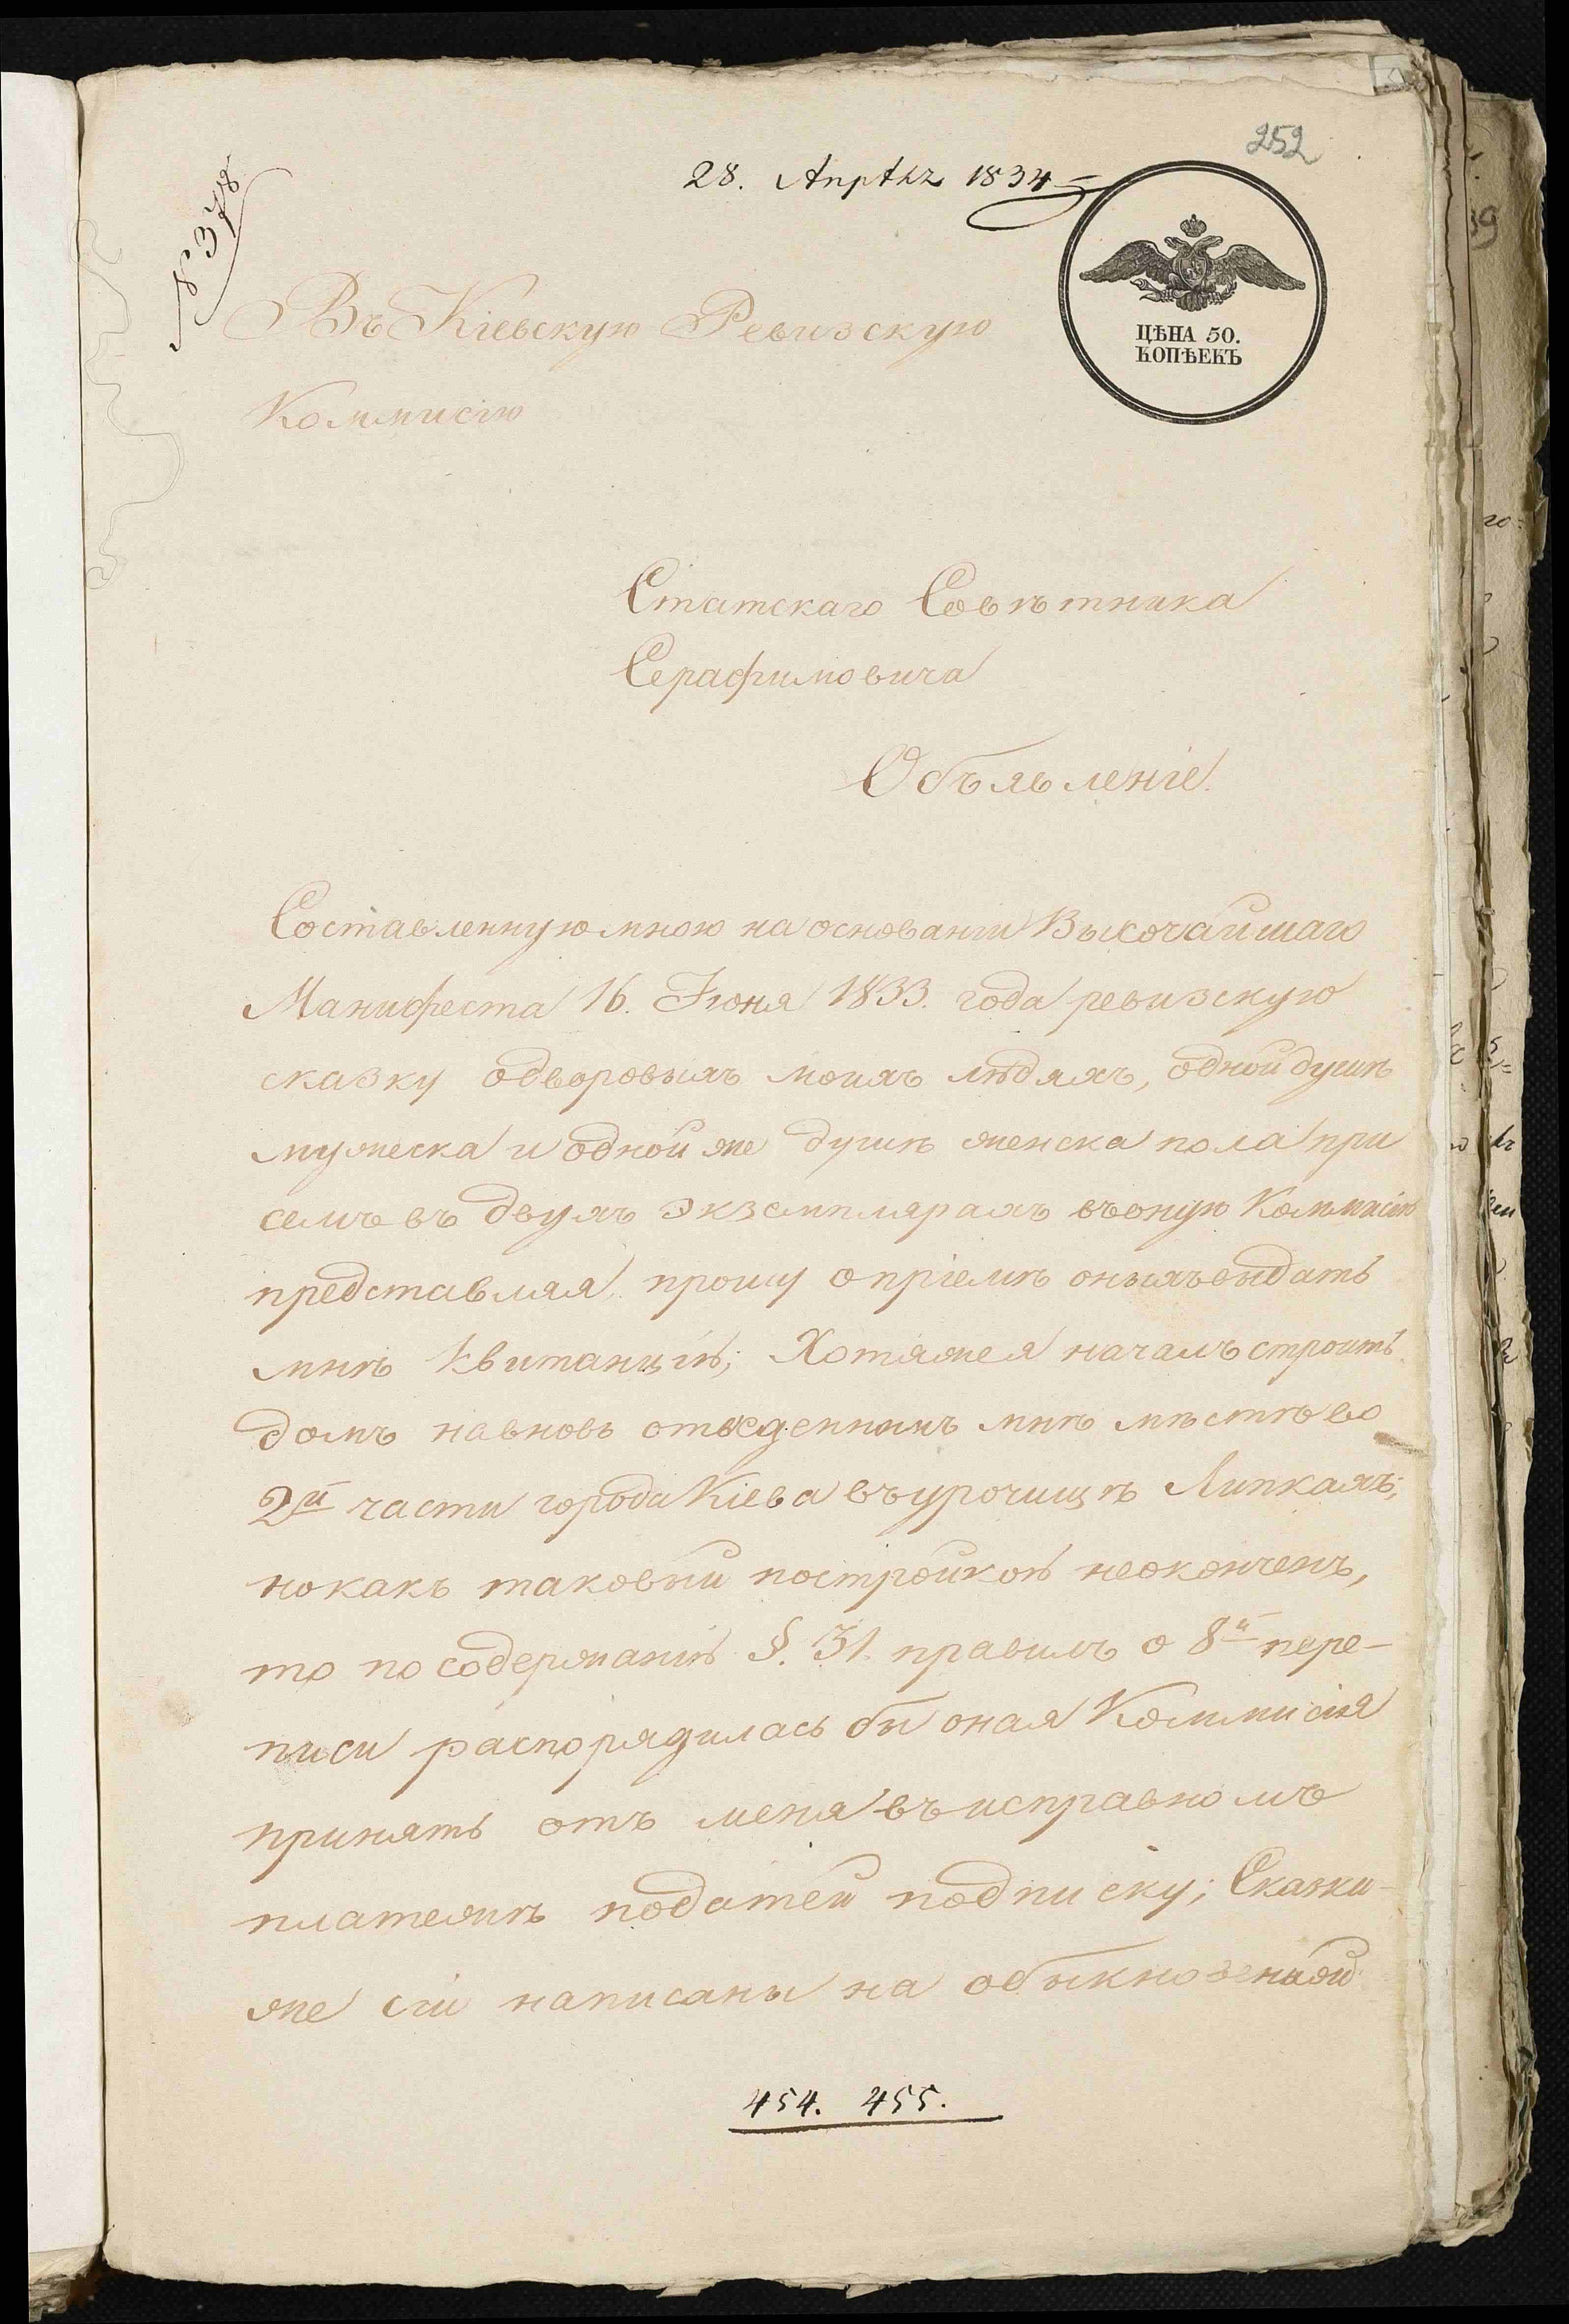 252
28. Апрѣлъ 1834
№ 378
ЦѢНА 50.
КОПѢЕКЪ
Въ Кіевскую Ревизскую
Коммисію
Статскаго Совѣтника
Серафимовича
Объявленіе.
Составленную мною на основаніи Высочайшаго
Манифеста 16. Іюня 1833. года ревизскую
сказку о дворовыхъ моихъ людяхъ, одной душѣ
мужеска и одной же душѣ женска пола при
семъ въ двухъ экземплярахъ въ оную Коммисію
представляя, прошу о пріемѣ оныхъ выдать
мнѣ квитанцію; Хотя же я началъ строить
домъ на вновь отведенномъ мнѣ мѣстѣ во
2й части города Кіева въ урочищѣ Липкахъ;
но какъ таковый постройкою не оконченъ,
то по содержанію §. 31. правилъ о 8й пере-
писи распорядилась бы оная Коммисія
принять отъ меня въ исправномъ
платежѣ податей подписку; Сказки-
же сіи написаны на обыкновенной
454. 455.